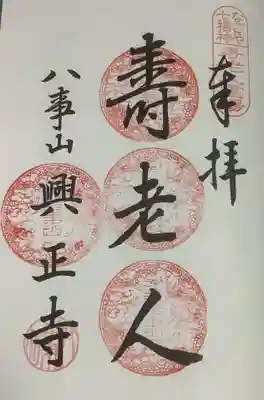 奉拝
壽老人
八事山
興正寺